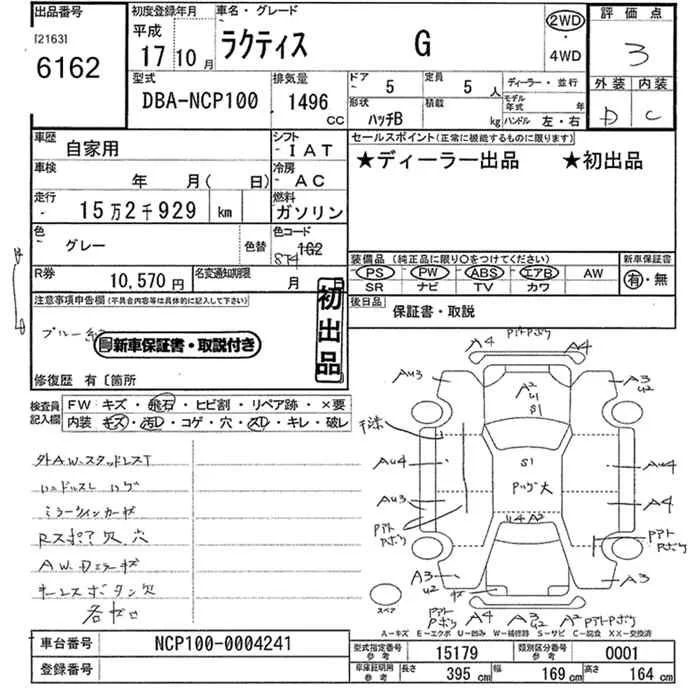 出品番号
[2163]
6162
初度登録年月
平成
17 10月
車名・グレード
ラクティス G
2WD
・
4WD
評価点
3
外装 内装
D C
型式
DBA-NCP100
排気量
1496
CC
ドア
5
形状
ハッチB
定員
5 人
積載
kg
ディーラー・並行
モデル年式 年
ハンドル 左・右
車歴
自家用
シフト
- IAT
車検
年 月( 日)
冷房
- AC
走行
- 15万2千929 km
燃料
ガソリン
色
グレー
色替
色コード
162
8T4
R券
10,570 円
名変通知期限
月 日
セールスポイント(正常に機能するものに限ります)
★ディーラー出品 ★初出品
装備品(純正品に限り○をつけてください)
PS PW ABS エアB AW
SR ナビ TV カワ
新車保証書
有・無
後日品
保証書・取説
注意事項申告欄(不具合内容等は具体的に記入して下さい)
新車保証書・取説付き
初出品
修復歴 有〔箇所
検査員記入欄
FW キズ・飛石・ヒビ割・リペア跡・×要
内装 キズ・汚レ・コゲ・穴・スレ・キレ・破レ
外AW.スタッドレスT
ハンドルスレ ハゲ
ミラーウインカーキズ
Rスポア欠 穴
キーレスボタン欠
A4
A4
AU3
A3
U2
A2
U1
S1
AU4
S1
AU4
AU3
A4
A3
A3
A4
A3
U2
A2
スペア
A-キズ E-エクボ U-凹み W-補修跡 S-サビ C-腐食 XX-交換済
車台番号
NCP100-0004241
登録番号
型式指定番号
参考
15179
類別区分番号
参考
0001
車庫証明用
参考
長さ 395 cm
幅 169 cm
高さ 164 cm